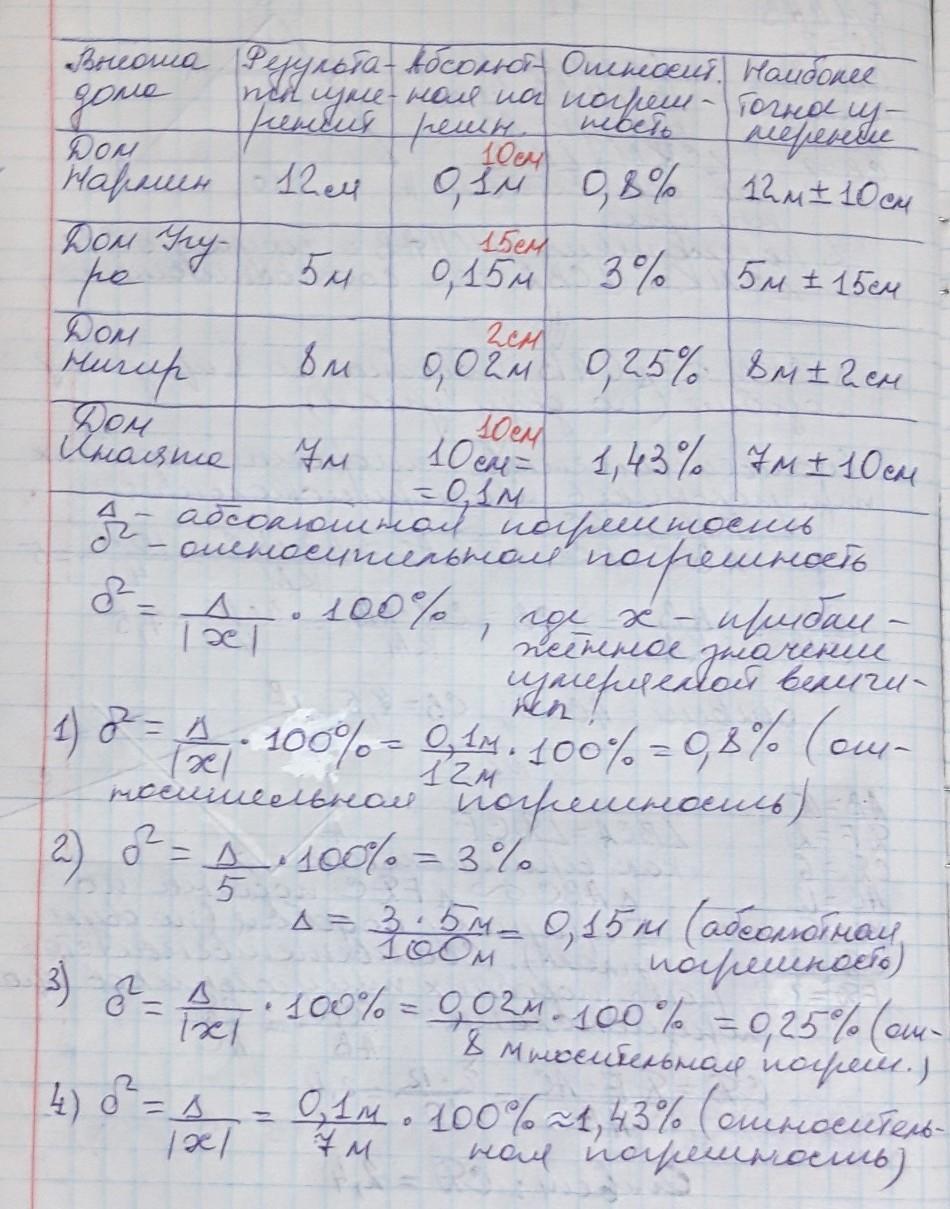 Высота дома | Результаты измерений | Абсолютная погрешн. | Относит. погрешность | Наиболее точное измерение
Дом Нармин | 12м | 10см 0,1м | 0,8% | 12м ± 10см
Дом Угура | 5м | 15см 0,15м | 3% | 5м ± 15см
Дом Нигяр | 8м | 2см 0,02м | 0,25% | 8м ± 2см
Дом Иналята | 7м | 10см 10см = = 0,1м | 1,43% | 7м ± 10см
Δ – абсолютная погрешность
δ – относительная погрешность
δ = Δ/|x| · 100%, где x – прибли-
жённое значение
измеряемой величи-
ны!
1) δ = Δ/|x| · 100% = 0,1м/12м · 100% = 0,8% (от-
носительная погрешность)
2) δ = Δ/5 · 100% = 3%
Δ = 3·5м/100м = 0,15м (абсолютная
погрешность)
3) δ = Δ/|x| · 100% = 0,02м/8м · 100% = 0,25% (от-
носительная погреш.)
4) δ = Δ/|x| = 0,1м/7м · 100% ≈ 1,43% (относитель-
ная погрешность)